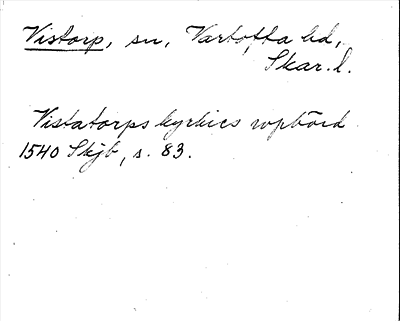 Vistorp, sn, Vartofta hd,
Skar. l.
Vistatorps kyrkies vpbörd
1540 Skjb, s. 83.